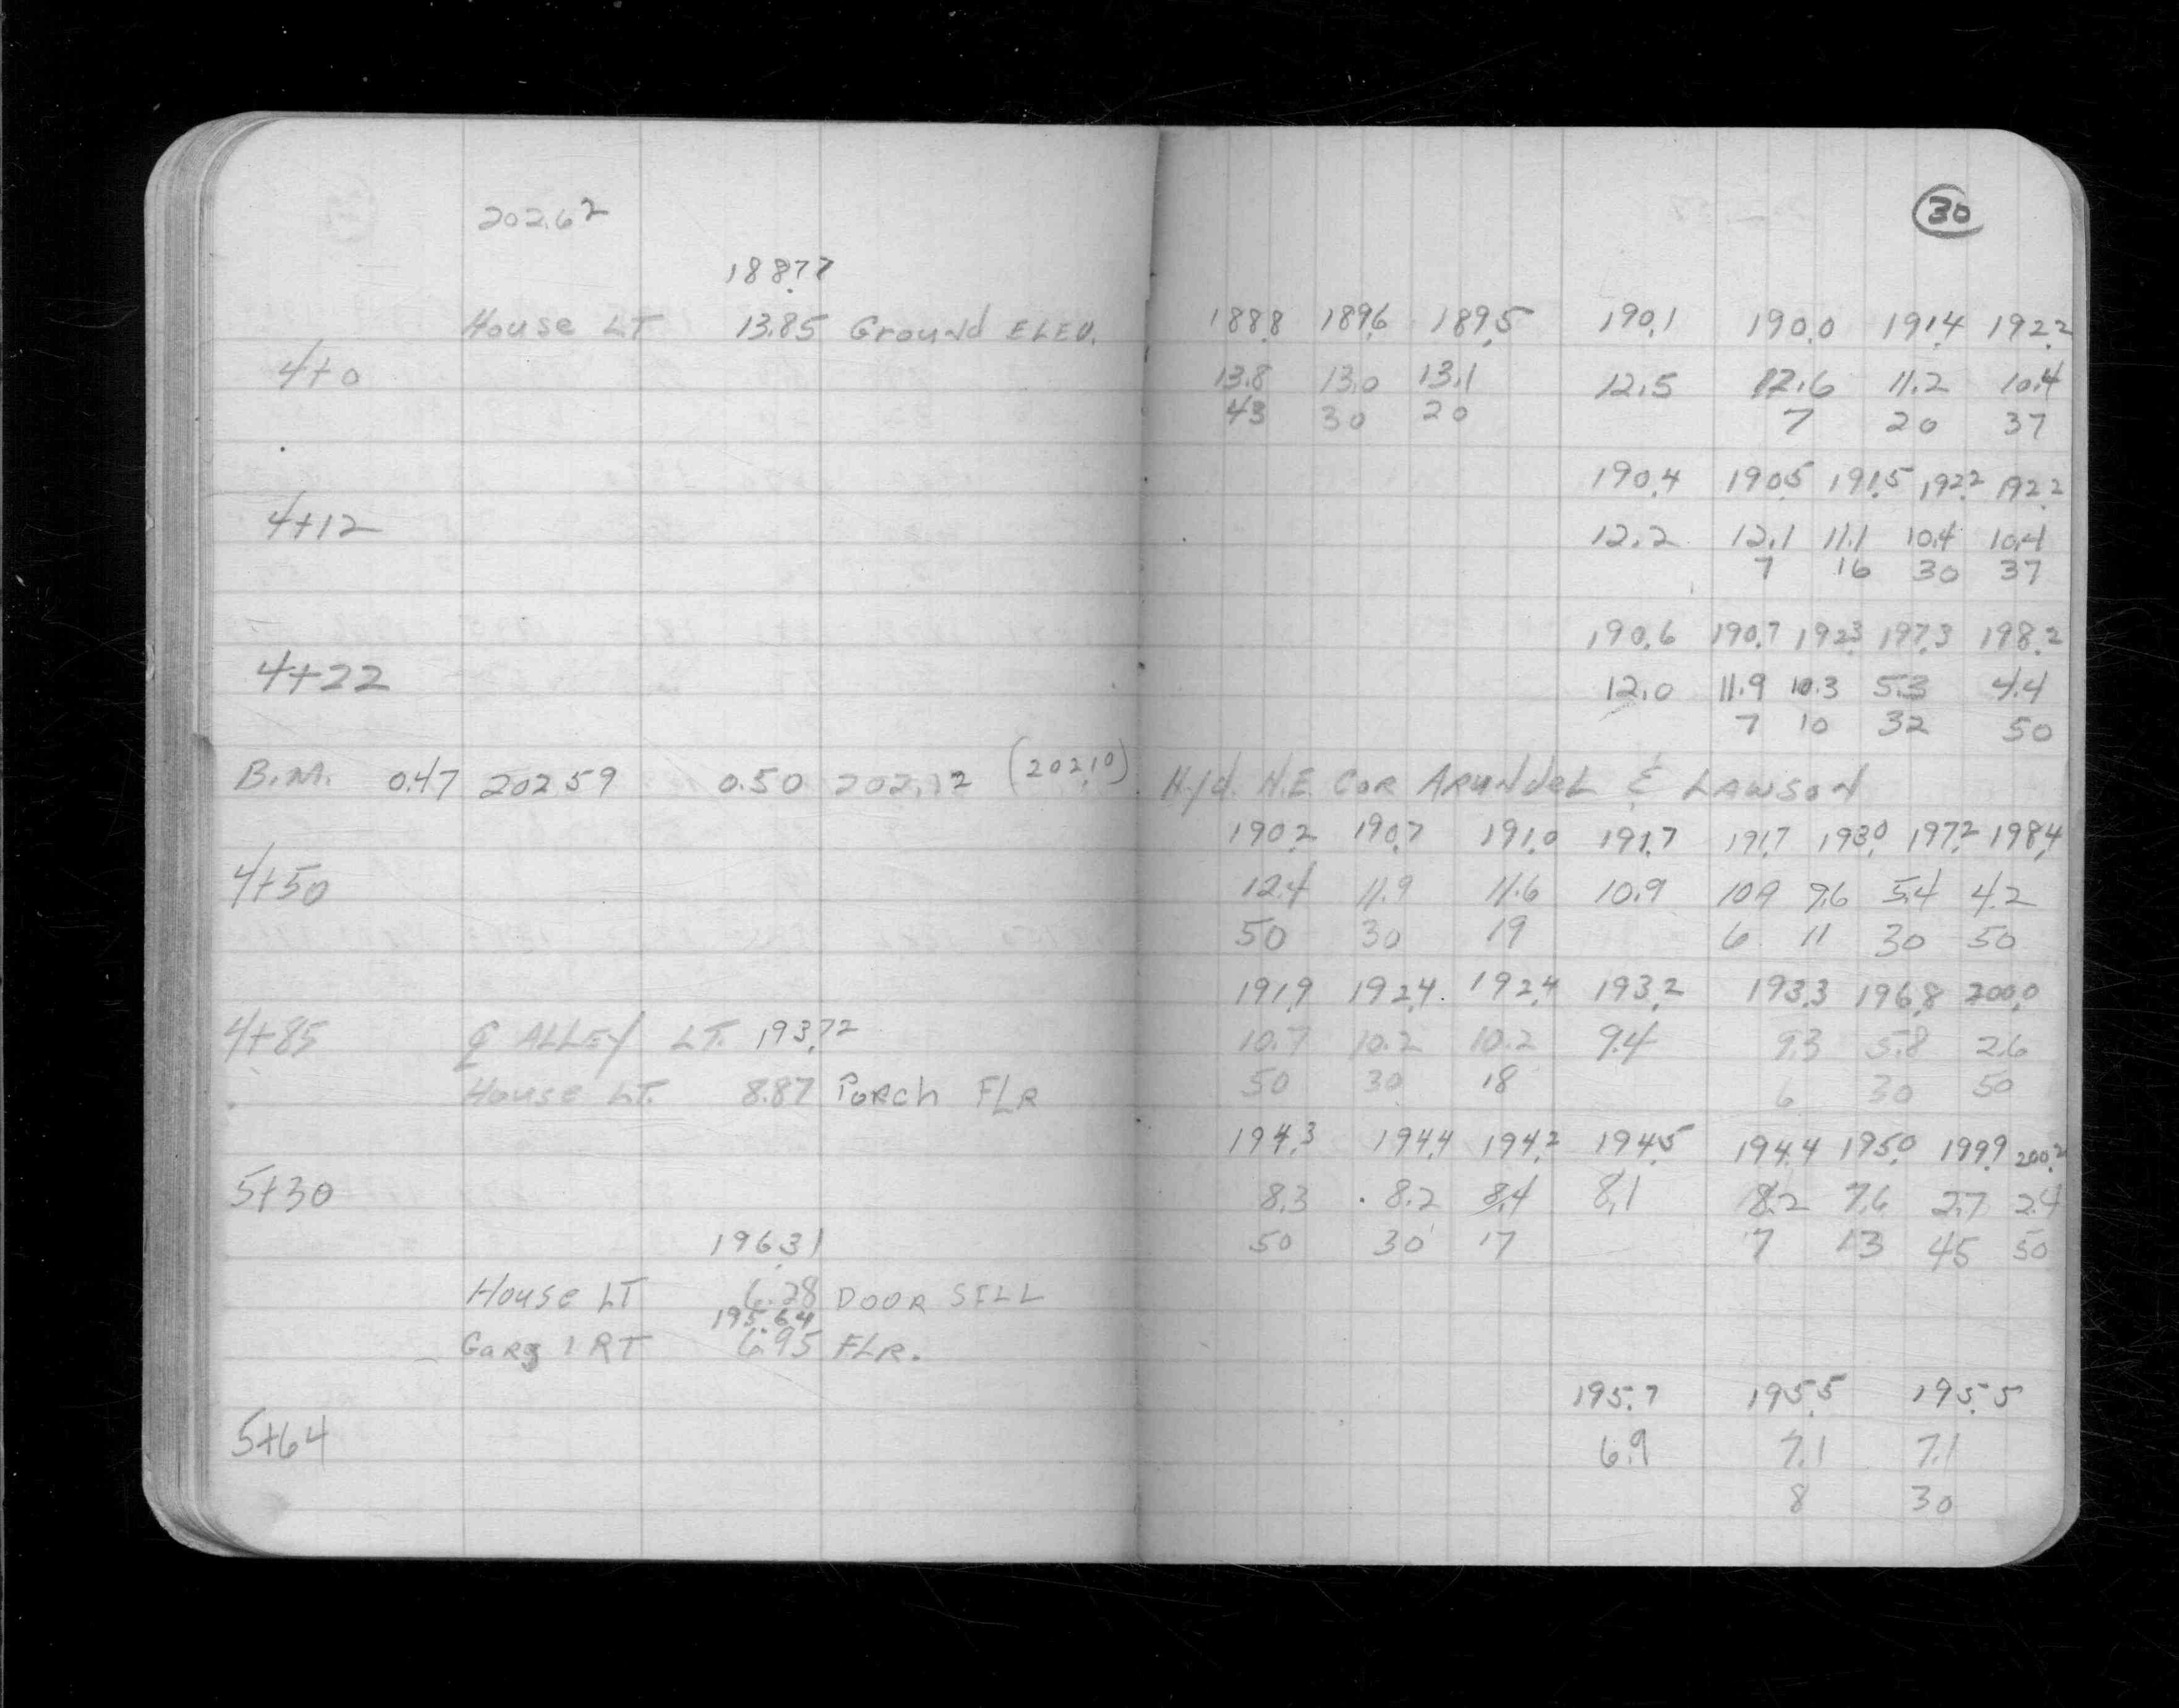 30
202.62
188.77
House LT 13.85 Ground ELEV. 188.8 189.6 189.5 190.1 190.0 191.4 192.2
4+0 13.8 13.0 13.1 12.5 12.6 11.2 10.4
43 30 20 7 20 37
190.4 190.5 191.5 192.2 192.2
4+12 12.2 12.1 11.1 10.4 10.4
7 16 30 37
190.6 190.7 192.3 197.3 198.2
4+22 12.0 11.9 10.3 5.3 4.4
7 10 32 50
B.M. 0.47 202.59 0.50 202.12 (202.10) Hyd. N.E. COR ARUNDEL & LAWSON
190.2 190.7 191.0 191.7 191.7 193.0 197.2 198.4
4+50 12.4 11.9 11.6 10.9 10.9 9.6 5.4 4.2
50 30 19 6 11 30 50
191.9 192.4 192.4 193.2 193.3 196.8 200.0
4+85 ℄ ALLEY LT. 193.72 10.7 10.2 10.2 9.4 9.3 5.8 2.6
House LT. 8.87 PORCH FLR 50 30 18 6 30 50
194.3 194.4 194.2 194.5 194.4 195.0 199.9 200.2
5+30 8.3 8.2 8.4 8.1 8.2 7.6 2.7 2.4
196.31 50 30 17 7 13 45 50
House LT 6.28 DOOR SILL
195.64
Garg 1 RT 6.95 FLR.
195.7 195.5 195.5
5+64 6.9 7.1 7.1
8 30